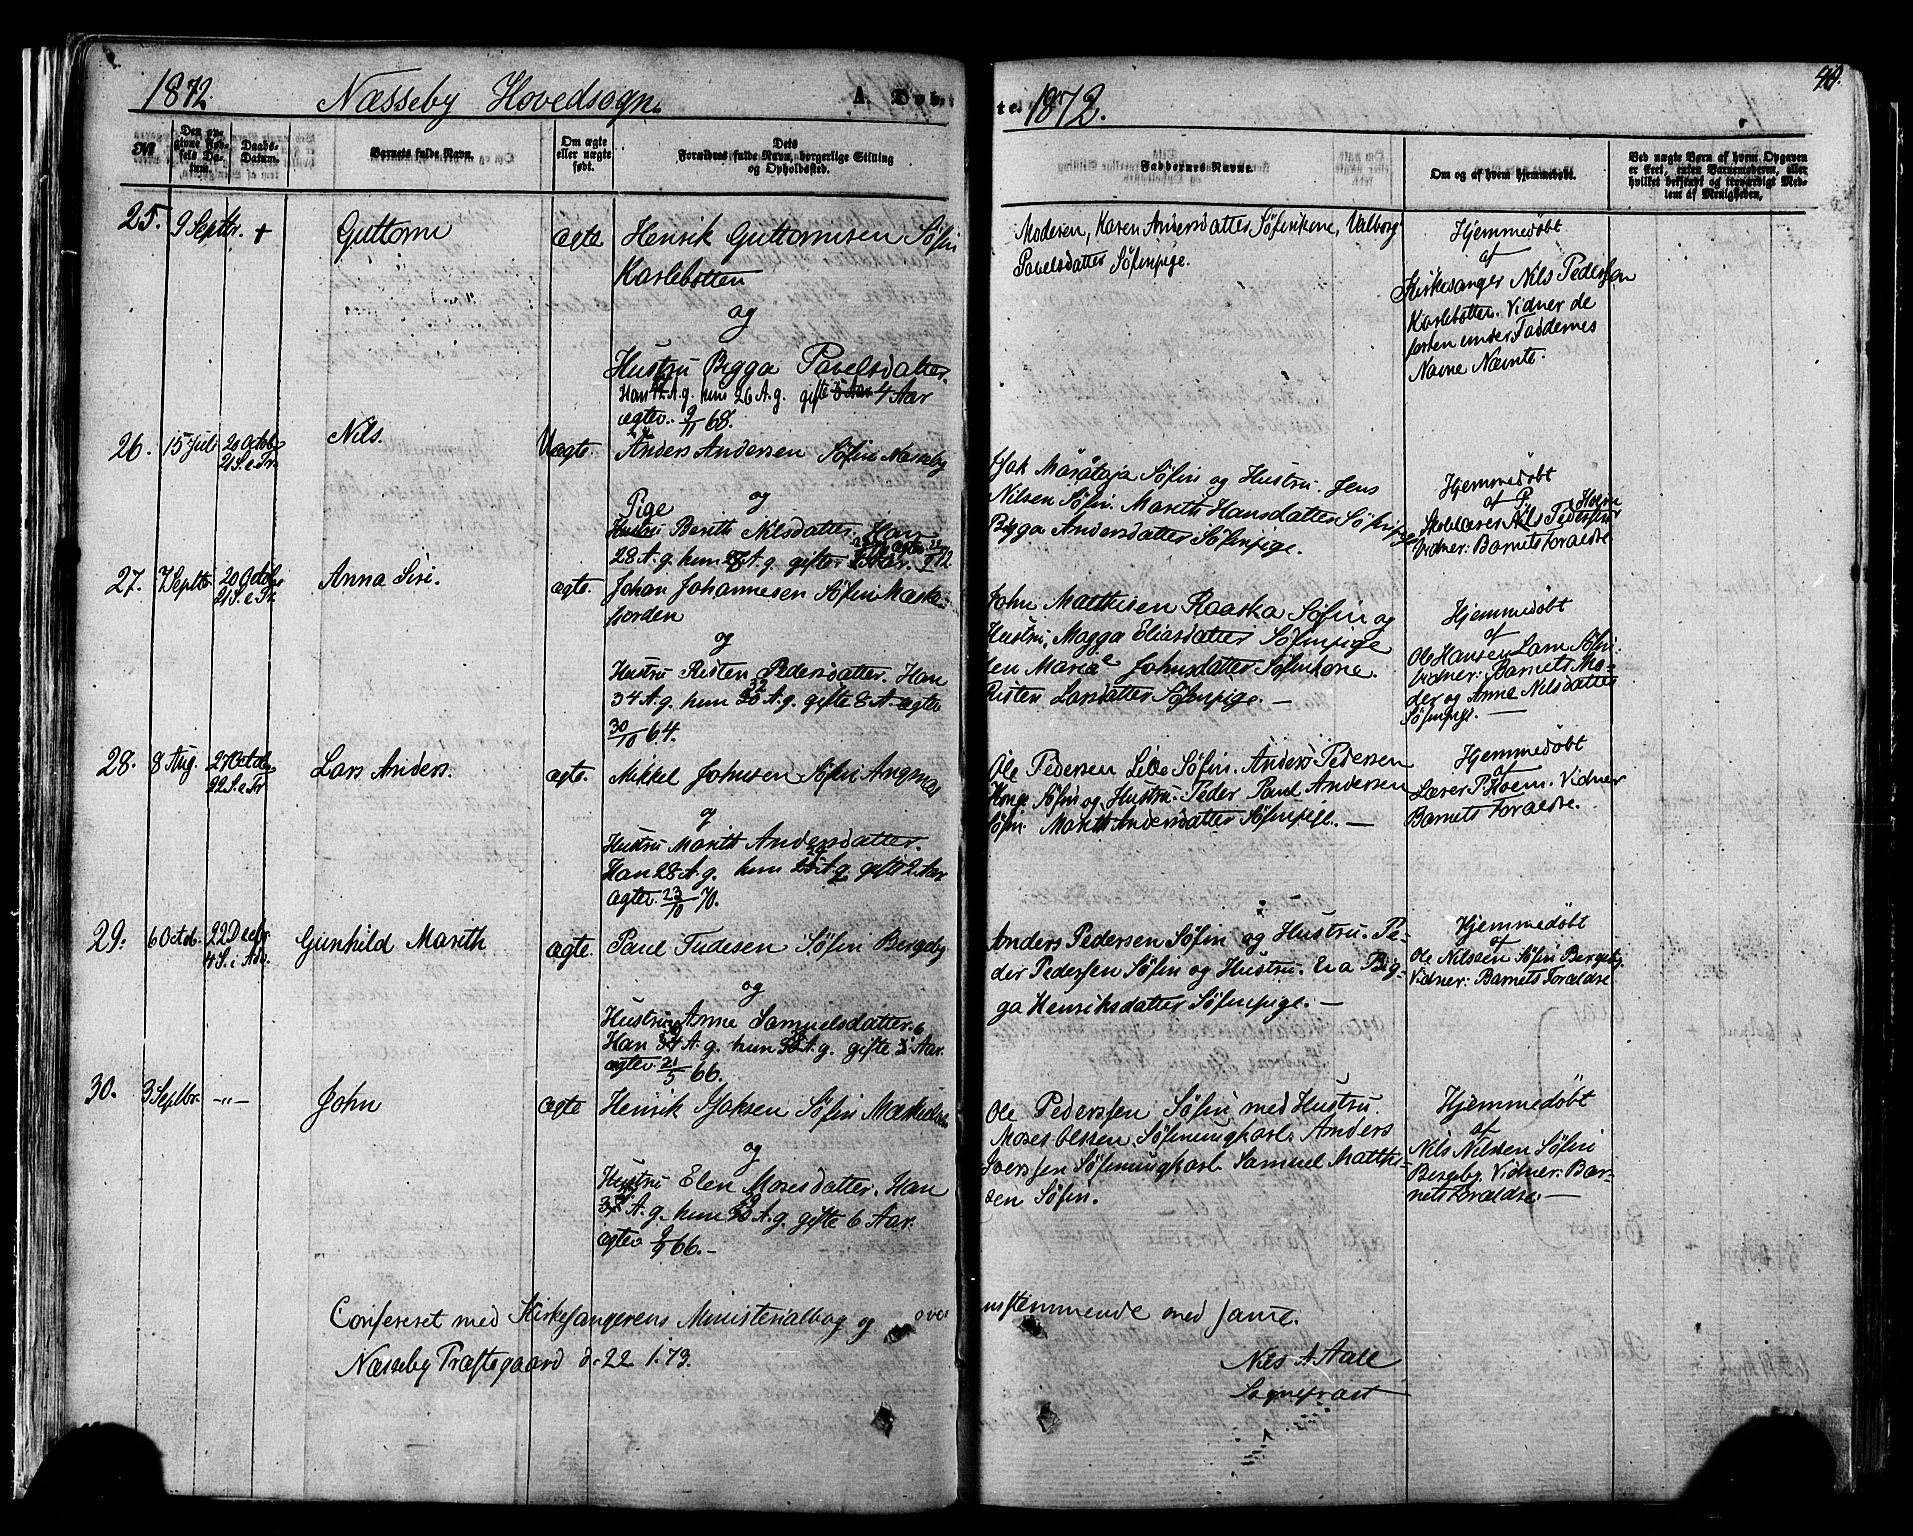 1872.
Næsseby Hovedsogn.
A. Døbte.
1872.
№
Den opgivne Fødsels Datum.
Daabs-Datum.
Barnets fulde Navn.
Om ægte eller uægte født.
Dets Forældres fulde Navn, borgerlige Stilling og Opholdssted.
Faddernes Navne.
Om og af hvem hjemmedøbt.
Ved uægte Børn af hvem Opgaven er skeet, enten Barnemoderen, eller hvilket bekjendt og troværdigt Medlem af Menigheden.
25. 9 Septbr. +
Guttorm
ægte
Henrik Guttormsen Søfin
Karlebotten
og
Hustru Bigga Pavelsdatter.
Han A.g. hun 26 A.g. gifte 5 Aar 4 Aar
ægtev. 9/11 68.
Moderen, Karen Andersdatter Søfinkone, Valborg
Pavelsdatter Søfinpige.
Hjemmedøbt
af
Kirkesanger Nils Pedersen
Karlebotten. Vidner de
foran under Faddernes
Navne Nævnte.
26. 15 Juli
20 Octob
21 S. e Tr.
Nils.
Uægte.
Anders Andersen Søfin Næsseby
og
Pige
Hustru Berith Nilsdatter. Han
28 A.g. hun A.g. gifte Aar.
Isak Søfin og Hustru. Jens
Nilsen Søfin. Marith Hansdatter Søfinpige
Bigga Andersdatter Søfinpige.
Hjemmedøbt
af P. Hoem
Skolelærer Nils Pedersen
Vidner: Barnets Foraldre
27. 7 Septbr
20 Octob
21 S. e Tr.
Anna Siri.
ægte.
Johan Johannesen Søfin Mæske-
fjorden
og
Hustru Risten Pedersdatter. Han
34 A.g. hun 32 A.g. gifte 8 A. ægtev
30/10 64.
John Mathisen Kaaska Søfin og
Hustru, Magga Eliasdatter Søfinpige
Maria Johnsdatter Søfinkone.
Risten Larsdatter Søfinpige. —
Hjemmedøbt
af
Ole Hansen Lam Søfin.
Vidner: Barnets Mo-
der og Anne Nilsdatter
Søfinpige. —
28. 8 Aug.
27 Octob
22 S. e Tr
Lars Anders.
ægte.
Mikkel Johnsen Søfin Angsnæs
og
Hustru Marith Andersdatter.
Han 28 A.g. hun A.g. gifte 2 Aar
ægtev. 23/10 70.
Ole Pedersen Lille Søfin. Anders Pedersen
Konge Søfin og Hustru. Peder Paul Andersen
Søfin. Marith Andersdatter Søfinpige. —
Hjemmedøbt
af
Lærer P. Hoem. Vidner
Barnets Foraldre.
29. 6 Octob.
22 Decbr.
4 S. i Adv.
Gunhild Marith
ægte.
Paul Tudesen Søfin Bergeby
og
Hustru Anne Samuelsdatter.
Han A.g. hun A.g. gifte 6 Aar.
ægtev. 21/5 66.
Anders Pedersen Søfin og Hustru. Pe-
der Pedersen Søfin og Hustru. Eva Big-
ga Henriksdatter Søfinpige. —
Hjemmedøbt
af
Ole Nilssen Søfin Bergeby.
Vidner: Barnets Foraldre
30. 3 Septbr. —„—
John
ægte
Henrik Isaksen Søfin Mæskelven
og
Hustru Elen Mosesdatter. Han
A.g. hun A.g. gifte 6 Aar.
ægtev 9/9 66. —
Ole Pedersen Søfin med Hustru.
Moses Olssen Søfinungkarl. Anders
Iversen Søfinungkarl. Samuel Matthi-
sen Søfin.
Hjemmedøbt
af
Nils Nilssen Søfin
Bergeby. Vidner: Bar-
nets Foraldre. —
Confereret med Kirkesangerens Ministerialbog og overensstemmende med samme.
Næsseby Præstegaard d. 22 1. 73.
Nils A Aall
Sognepræst